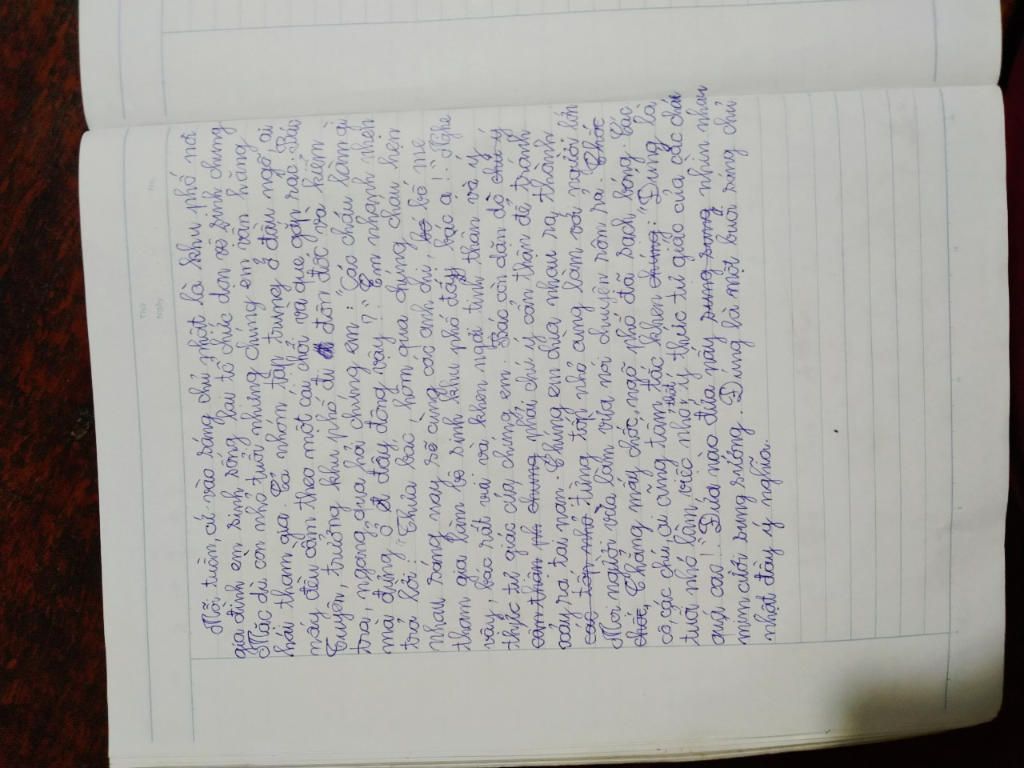 Mỗi tuần, cứ vào sáng chủ nhật là khu phố nơi
gia đình em sinh sống lại tổ chức dọn vệ sinh chung
Mặc dù còn nhỏ tuổi nhưng chúng em vẫn hăng
hái tham gia. Cả nhóm tập trung ở đầu ngõ, ai
nấy đều cầm theo một cái chổi và que gắp rác. Bác
Tuyên, trưởng khu phố đi đôn đốc và kiểm
tra, ngang qua hỏi chúng em: "Các cháu làm gì
mà đứng ở đây đông vậy?" Em nhanh nhẹn
trả lời: "Thưa bác, hôm qua chúng cháu hẹn
nhau sáng nay sẽ cùng các anh chị, bố mẹ
tham gia làm vệ sinh khu phố đấy bác ạ!" Nghe
vậy, bác rất vui và khen ngợi tinh thần và ý
thức tự giác của chúng em. Bác còn dặn dò chú ý
cẩn thận chung phải chú ý cẩn thận để tránh
xảy ra tai nạn. Chúng em chia nhau ra thành
từng tốp nhỏ cùng làm với người lớn
Mọi người vừa làm vừa nói chuyện rôm rả. Chốc
chốc, Chẳng mấy chốc, ngõ phố đã sạch bóng. Các
cô, các chú, ai cũng tấm tắc khen chúng: "Đúng là
tuổi nhỏ làm việc nhỏ, ý thức tự giác của các cháu
thật
quá cao!". Đứa nào đứa nấy sung sung nhìn nhau
mỉm cười sung sướng. Đúng là một buổi sáng chủ
nhật đầy ý nghĩa.